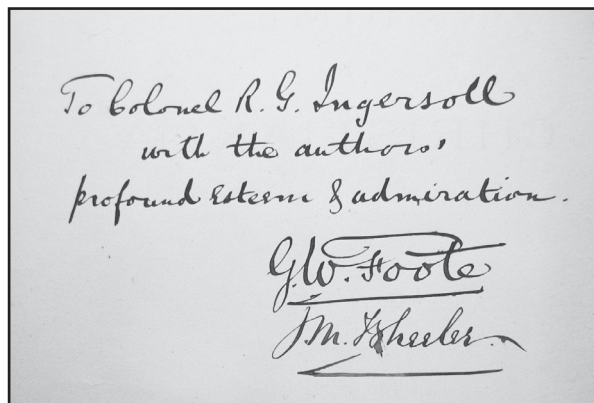 To Colonel R. G. Ingersoll
with the authors'
profound esteem & admiration.
G. W. Foote
J. M. Wheeler.